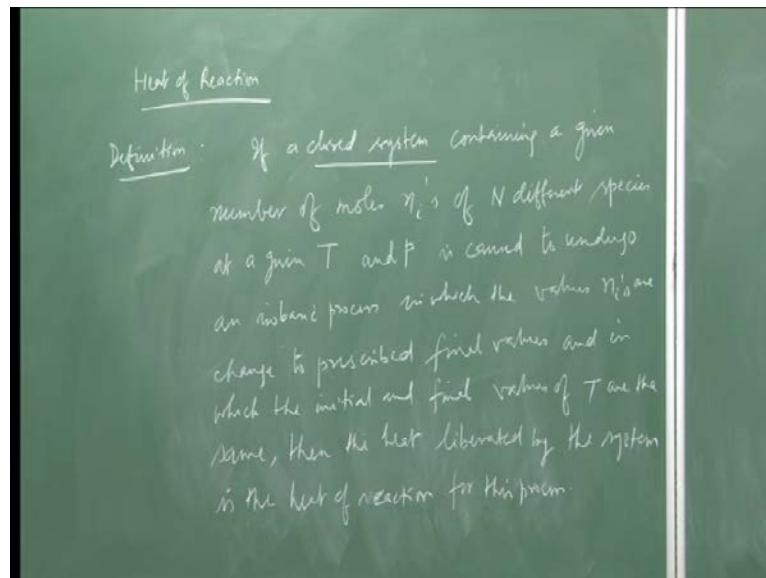 Heat of Reaction
Definition: If a closed system containing a given
number of moles ni's of N different species
at a given T and P is caused to undergo
an isobaric process in which the values ni's are
change to prescribed final values and in
which the initial and final values of T are the
same, then the heat liberated by the system
is the heat of reaction for this process.